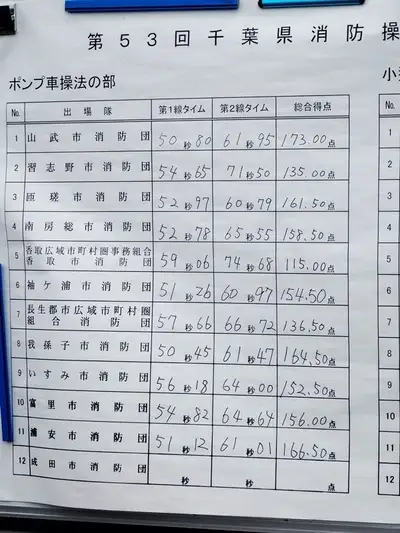 第53回千葉県消防操
ポンプ車操法の部
小
No. 出場隊 第1線タイム 第2線タイム 総合得点 No.
1 山武市消防団 50秒80 61秒95 173.00点 1
2 習志野市消防団 54秒65 71秒50 135.00点 2
3 匝瑳市消防団 52秒97 60秒79 161.50点 3
4 南房総市消防団 52秒78 65秒55 158.50点 4
5 香取広域市町村圏事務組合
香取市消防団 59秒06 74秒68 115.00点 5
6 袖ケ浦市消防団 51秒26 60秒97 154.50点 6
7 長生郡市広域市町村圏
組合消防団 57秒66 66秒72 136.50点 7
8 我孫子市消防団 50秒45 61秒47 164.50点 8
9 いすみ市消防団 56秒18 64秒00 152.50点 9
10 富里市消防団 54秒82 64秒64 156.00点 10
11 浦安市消防団 51秒12 61秒01 166.50点 11
12 成田市消防団 秒 秒 点 12